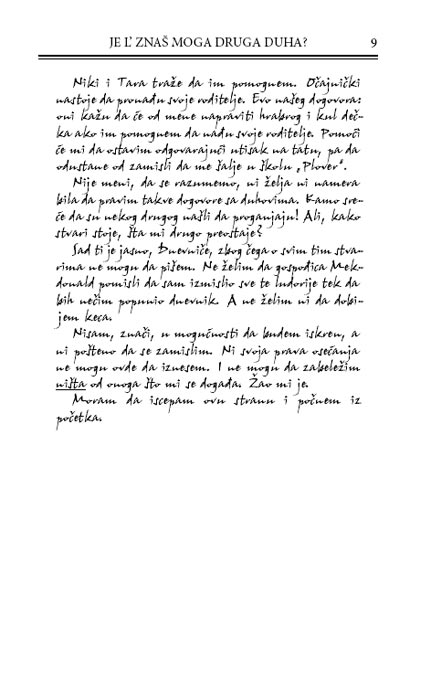 JE L’ ZNAŠ MOGA DRUGA DUHA? 9
Niki i Tara traže da im pomognem. Očajnički
nastoje da pronađu svoje roditelje. Evo našeg dogovora:
oni kažu da će od mene napraviti hrabrog i kul deč-
ka ako im pomognem da nađu svoje roditelje. Pomoći
će mi da ostavim odgovarajući utisak na tatu, pa da
odustane od zamisli da me šalje u školu „Plover“.
Nije meni, da se razumemo, ni želja ni namera
bila da pravim takve dogovore sa duhovima. Kamo sre-
će da su nekog drugog našli da proganjaju! Ali, kako
stvari stoje, šta mi drugo preostaje?
Sad ti je jasno, Dnevniče, zbog čega o svim tim stva-
rima ne mogu da pišem. Ne želim da gospođica Mek-
donald pomisli da sam izmislio sve te ludorije tek da
bih nečim popunio dnevnik. A ne želim ni da dobi-
jem keca.
Nisam, znači, u mogućnosti da budem iskren, a
ni pošteno da se zamislim. Ni svoja prava osećanja
ne mogu ovde da iznesem. I ne mogu da zabeležim
ništa od onoga što mi se događa. Žao mi je.
Moram da iscepam ovu stranu i počnem iz
početka.